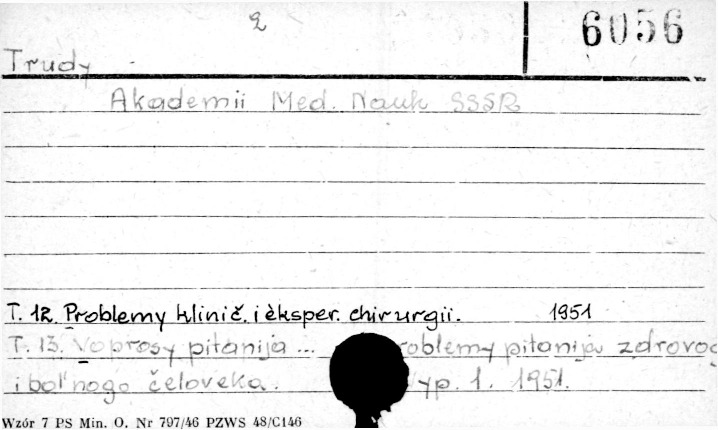 2
6056
Trudy
Akademii Med. Nauk SSSR
T. 12. Problemy klinič. i èksper. chirurgii. 1951
T. 13. Voprosy pitanija ... roblemy pitanija zdrovog
i bol'nogo čeloveka. yp. 1. 1951.
Wzór 7 PS Min. O. Nr 797/46 PZWS 48/C146